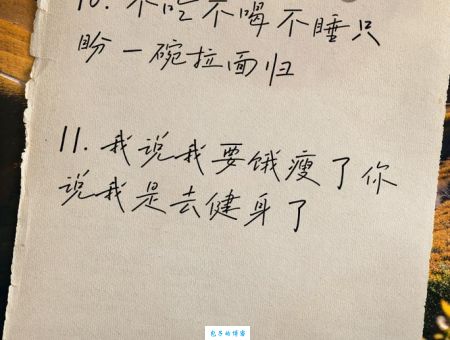 10. 不吃不喝不睡只
盼一碗拉面归
11. 我说我要饿瘦了你
说我是去健身了
包子的博客